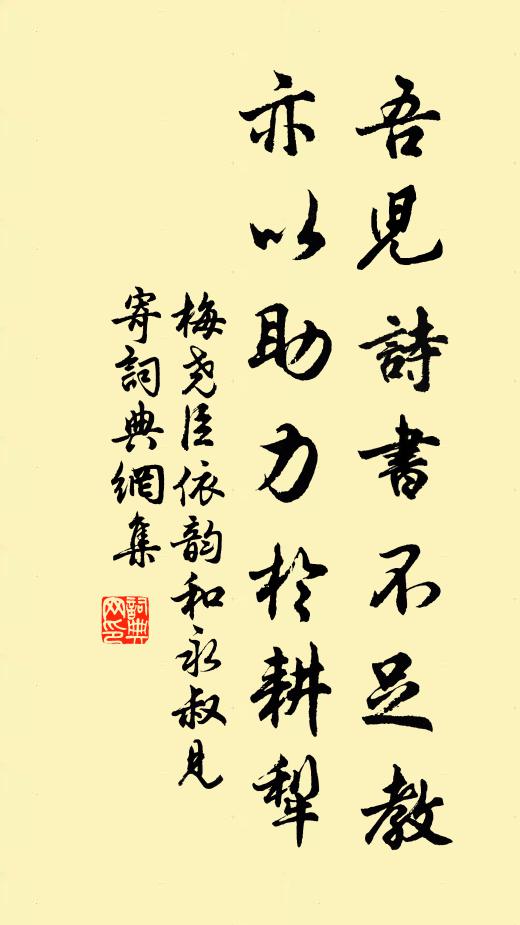 吾児詩書不足教
亦以助力於耕犁
梅尧臣依韵和永叔見
寄詞典網集
詞典
网印